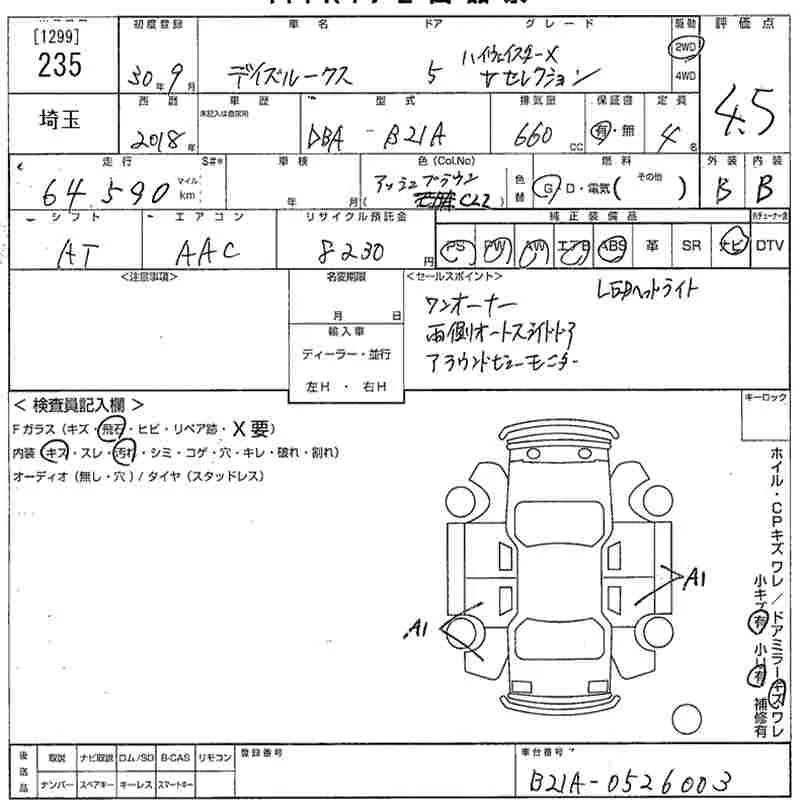 [1299]
235
埼玉
初度登録
30年 9月
車名
デイズルークス
ドア
5
グレード
ハイウェイスターX
Vセレクション
駆動
2WD
4WD
評価点
4.5
西暦
2018年
車歴
未記入は自家用
型式
DBA - B21A
排気量
660 cc
保証書
有・無
定員
4名
走行
64,590
マイル
km
S#*
車検
年 月
色(Col.No)
アッシュブラウン
CLL
色替
燃料
G・D・電気( その他 )
外装
B
内装
B
シフト
AT
エアコン
AAC
リサイクル預託金
8230円
純正装備品
PS PW AW エアB ABS 革 SR ナビ
DTV
<注意事項>
名変期限
月 日
輸入車
ディーラー・並行
左H ・ 右H
<セールスポイント>
ワンオーナー
LEDヘッドライト
両側オートスライドドア
アラウンドビューモニター
< 検査員記入欄 >
Fガラス(キズ・飛石・ヒビ・リペア跡・X要)
内装(キズ・スレ・汚れ・シミ・コゲ・穴・キレ・破れ・割れ)
オーディオ(無し・穴)/タイヤ(スタッドレス)
キーロック
ホイル・CPキズ ワレ/ドアミラーキズ ワレ
小キズ有 小U有 補修有
A1
A1
後送品
取説 ナビ取説 ロム/SD B-CAS リモコン
ナンバー スペアキー キーレス スマートキー
登録番号
車台番号
B21A-0526003